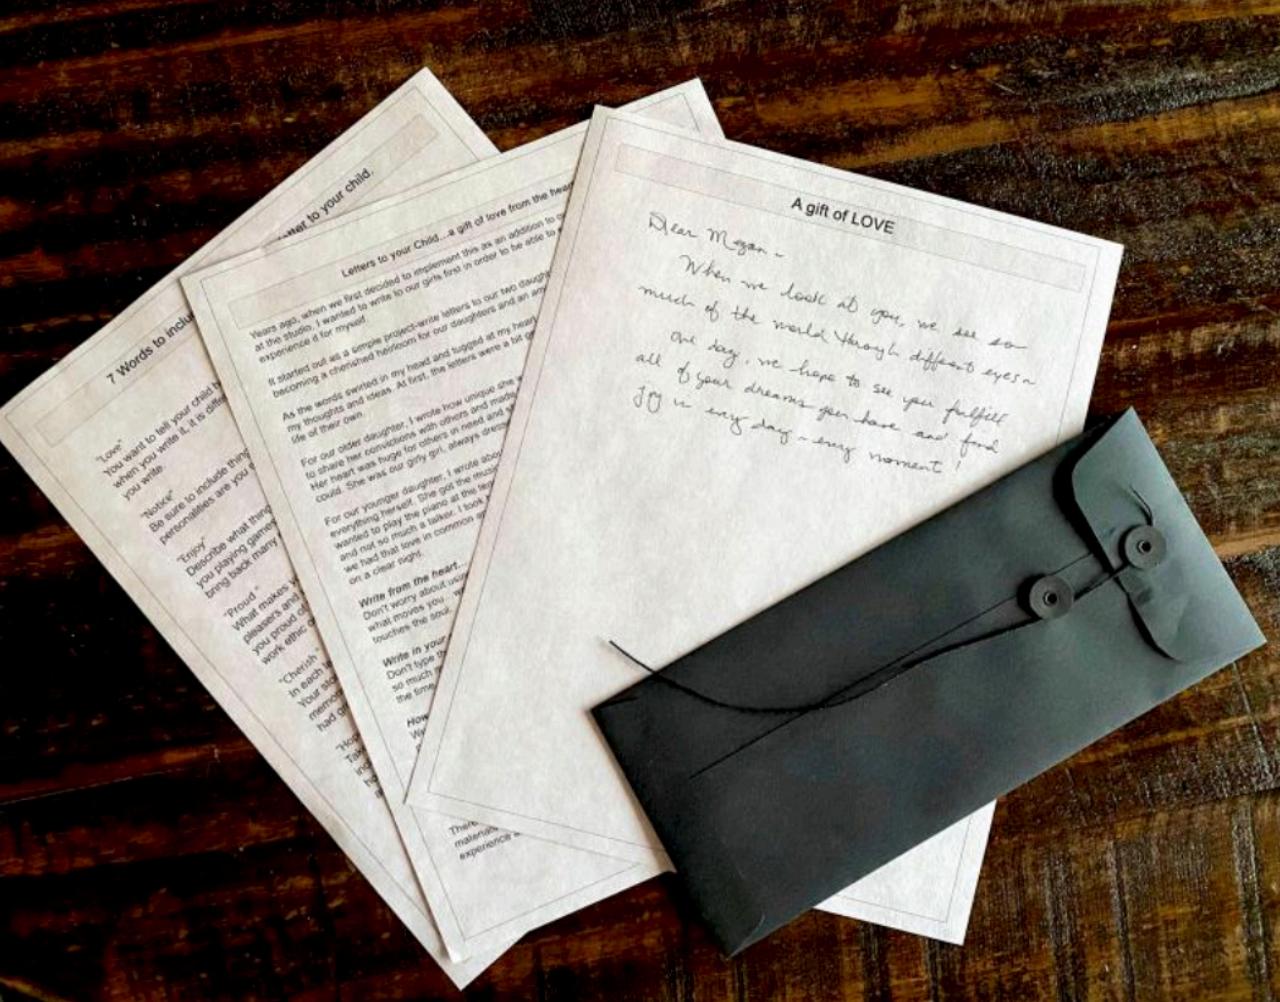 A gift of LOVE
Dear Megan ~
When we look at you, we see so
much of the world through different eyes ~
One day, we hope to see you fulfill
all of your dreams you have and find
joy in every day ~ every moment!
Letters to your Child...a gift of love from the hear
Years ago, when we first decided to implement this as an addition to
at the studio, I wanted to write to our girls first in order to be able to
experience it for myself.
It started out as a simple project-write letters to our two daugh
becoming a cherished heirloom for our daughters and an
As the words swirled in my head and tugged at my hear
my thoughts and ideas. At first, the letters were a bit
life of their own.
For our older daughter, I wrote how unique she
to share her convictions with others and made
Her heart was huge for others in need and
could. She was our girly girl, always dress
For our younger daughter, I wrote abou
everything herself. She got the music
wanted to play the piano at the
and not so much a talker. I took
we had that love in common
on a clear night.
Write from the heart...
Don't worry about usin
what moves you
touches the soul.
Write in your
Don't type th
so much
the time
How
There
material
experience
7 Words to inclu etter to your child.
"Love"
You want to tell your child
when you write it, it is diffe
you write.
"Notice"
Be sure to include thing
personalities are you
"Enjoy"
Describe what thin
you playing games
bring back many
"Proud "
What makes
pleasers and
you proud of
work ethic
"Cherish"
In each
Your
memo
had
"Hop
Ta